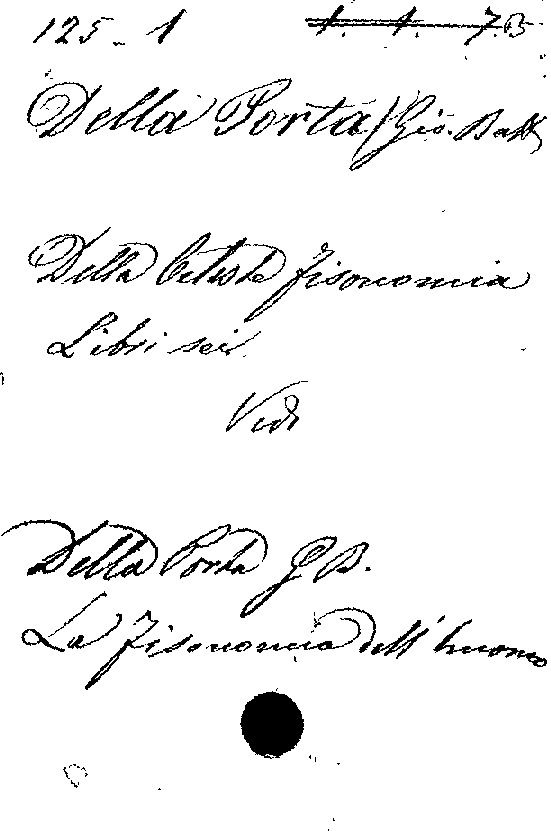 125 - 1 1. 1. 7.B
Della Porta (Gio. Batt
Della Celeste fisonomia
Libri sei
Vedi
Della Porta G. B.
La fisonomia dell'huomo